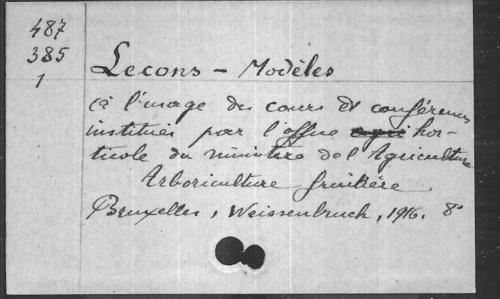 487
385
1
Lecons - Modèles
(à l'usage des cours et conférences
institués par l'office hor-
ticole du ministère de l'Agriculture
Arboriculture fruitière
Bruxelles, Weissenbruch, 1916. 8°